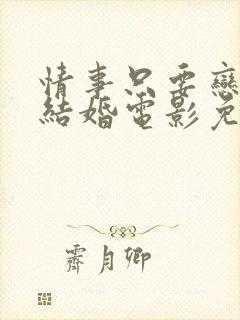 情事只要戀
結婚電影免
霽月卿